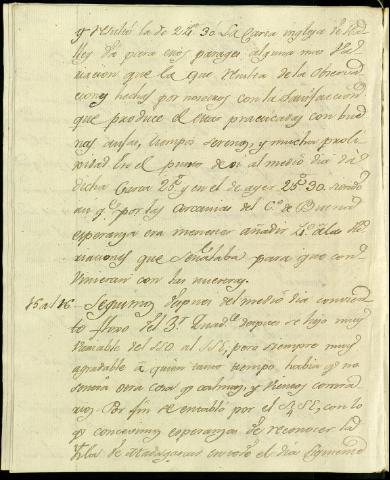 y resultó la de 24° 30. La Carta inglesa de
da para esos parages alguna mas
que la que resulta de las observa
ciones hechas por nosotros con la satisfaccion
que produce el estar practicadas con bue
nas tiempos serenos, y mucha proli
xidad En el punto de oi al medio dia da
dicha Carta 26° y en el de ayer 25° 30.
en las cercanias del C.° de Buena
esperanza era menester añadir 4° a las
que Señalaba para que con
vinieran con las nuestras.
15 al 16 - Seguimos despues del medio dia con viento
floxo del 3.r Quad.te despues se hizo muy
variable del SSO al SSE, pero siempre muy
agradable á quien tanto tiempo había q.e no
tenía otra cosa q.e calmas, y vientos contra
rios. Por fin se entabló por el S¼SE, con lo
q.e concevimos esperanzas de reconocer la
Isla de Madagascar el día siguiente